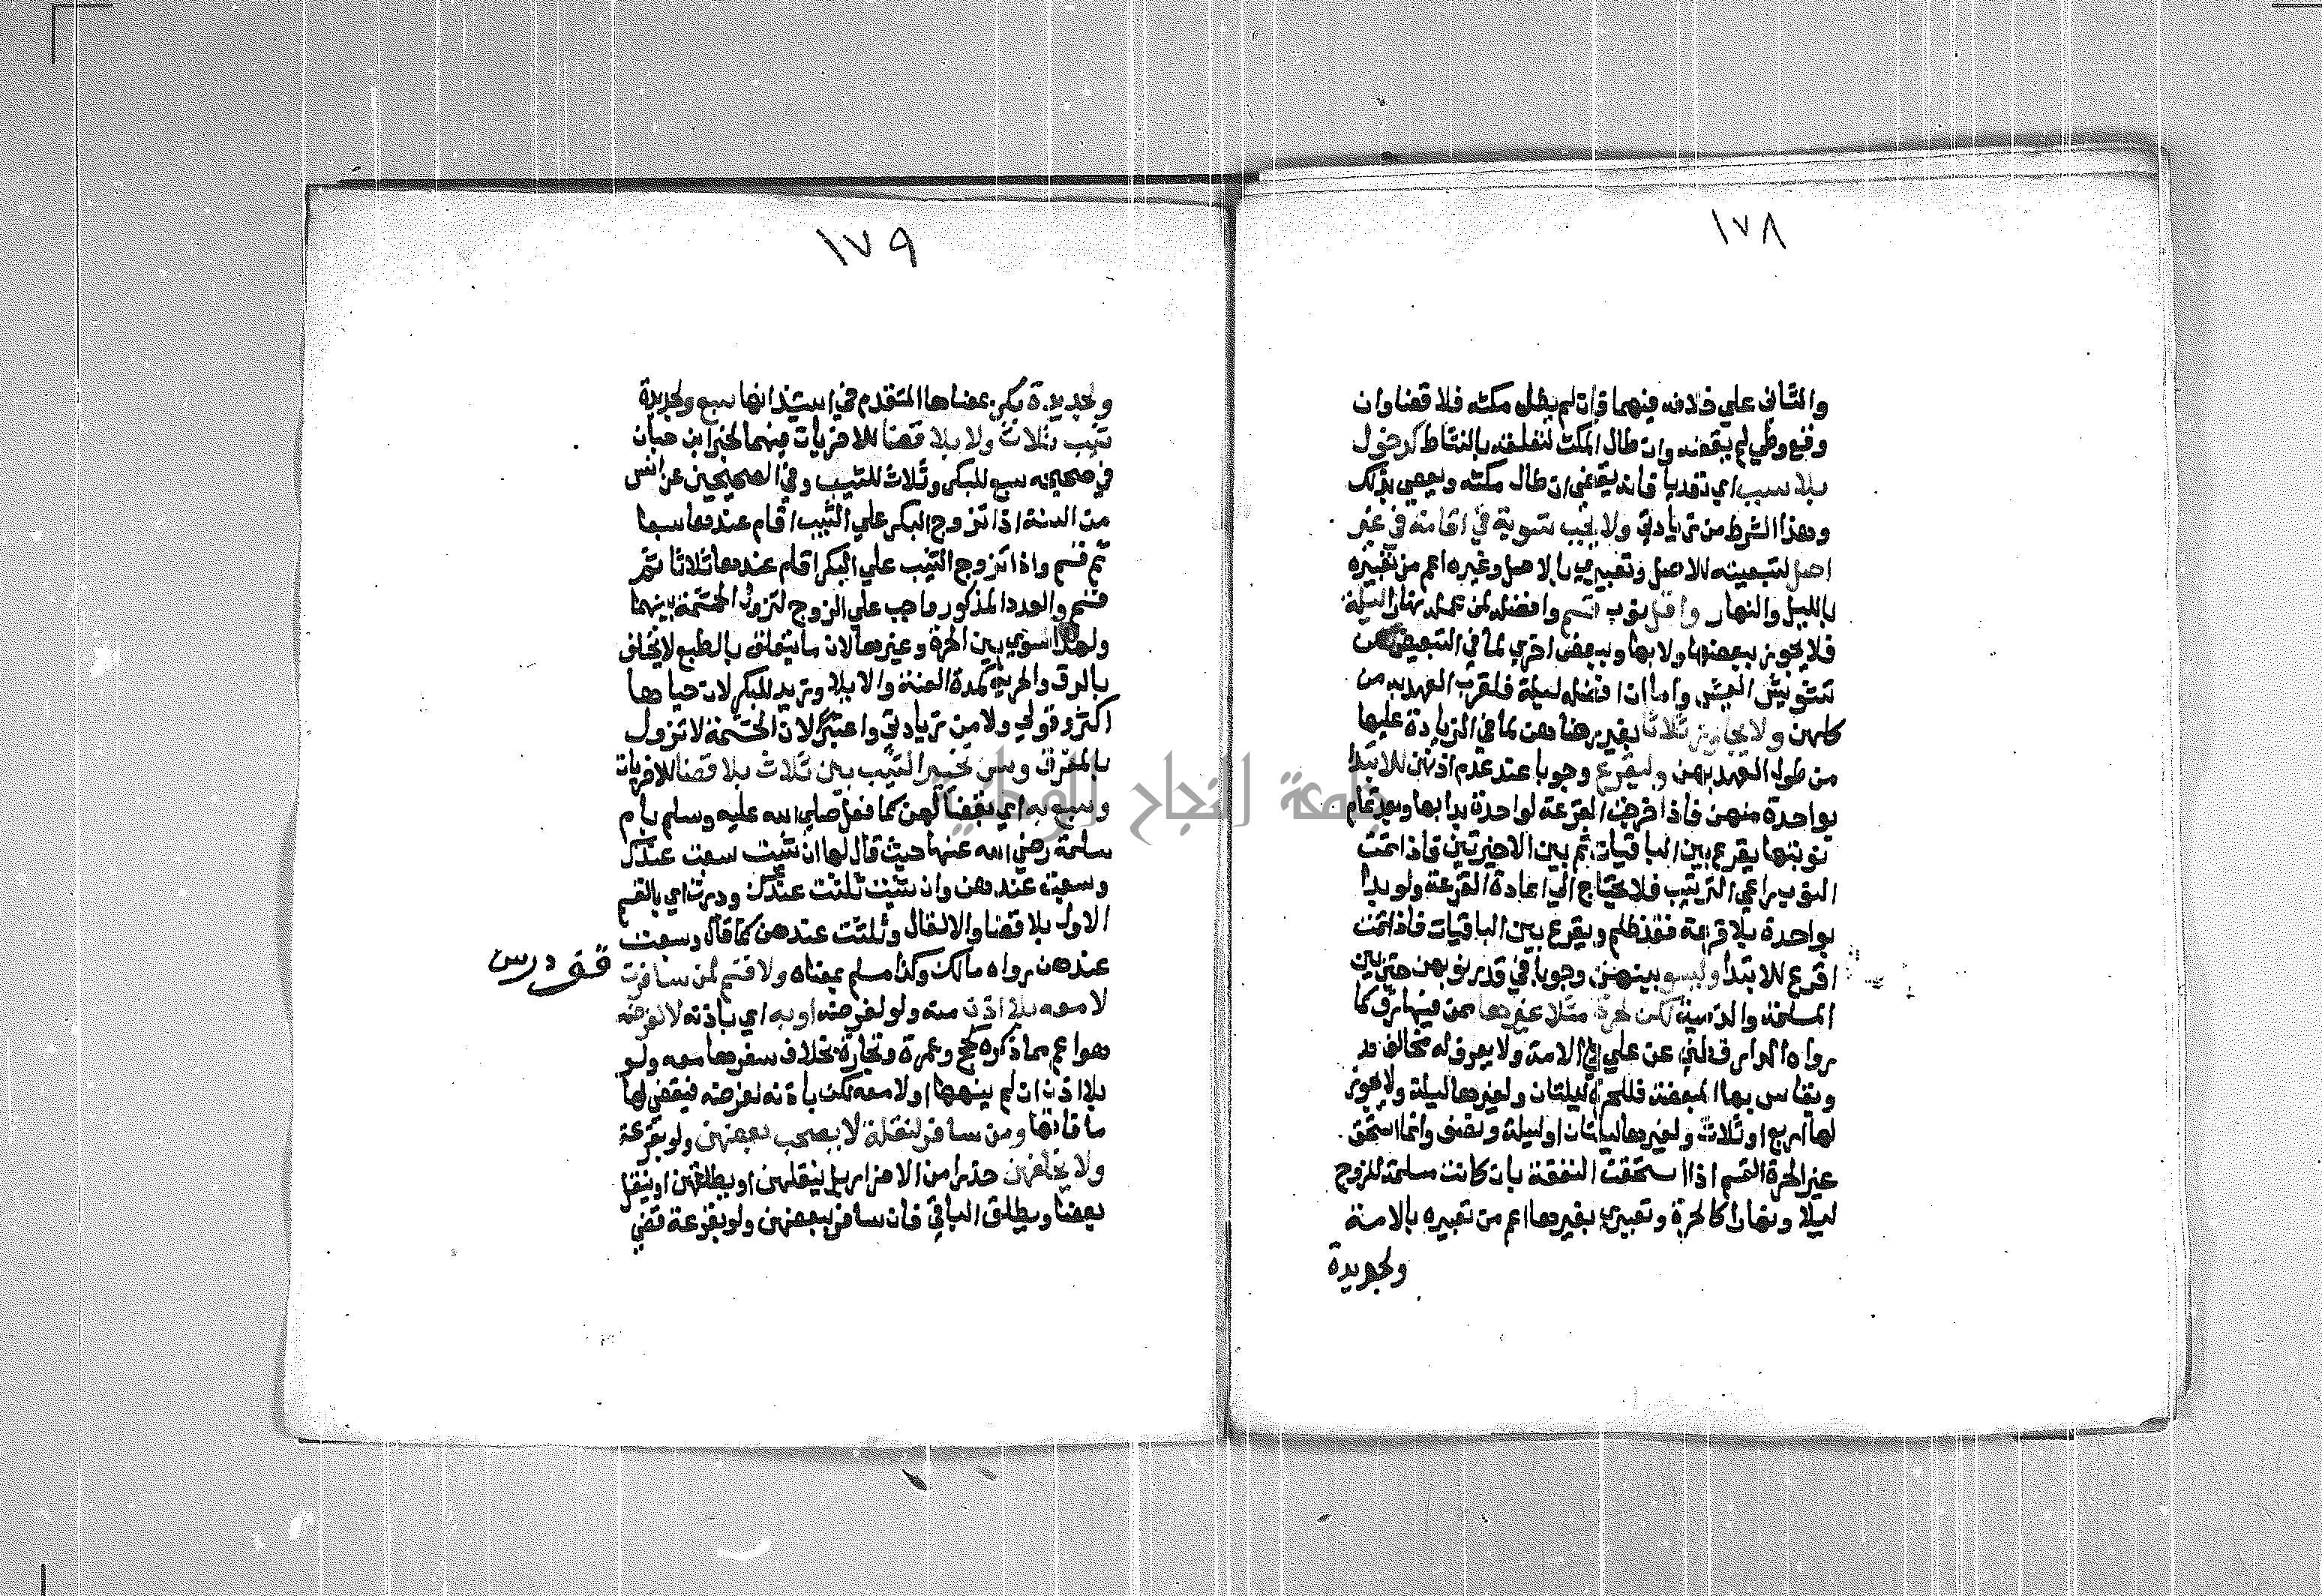 ١٧٨
والثاني علي خلافه فيهما وان لم يطل مكثه فلا قضا وان
وقع وطي لم يقضه وان طال المكث لتعلقه بالنشاط كدخول
بلا سبب اي تعديا فانه يقضي ان طال مكثه ويعصي بذلك
وهذا الشرط من زيادتي ولا يجب تسوية في اقامته في غير
اصل لتبعيته للاصل وتعبيري بالاصل وغيره اعم من تعبيره
بالليل والنهار واقل نوب قسم وافضله لمن عمله نهارا ليلة
فلا يجوز ببعضها ولا بها وببعض اخري لما في التبعيض من
تشويش العيش واما ان افضله ليلة فلقرب العهد به من
كلهن ولا يجاوز ثلاثا بغير رضاهن لما في الزيادة عليها
من طول العهد بهن وليقرع وجوبا عند عدم اذنهن للابتدا
بواحدة منهن فاذا خرجت القرعة لواحدة بدا بها وبعد تمام
نوبتها يقرع بين الباقيات ثم بين الاخيرتين فاذا تمت
النوب راعي الترتيب فلا يحتاج الي اعادة القرعة ولو بدا
بواحدة بلا قرعة فقد ظلم ويقرع بين الباقيات فاذا تمت
اقرع للابتدا وليسو بينهن وجوبا في قدر نوبهن حتي بين
المسلمة والذمية لكن لحرة مثلا غيرها ممن فيها رق كما
رواه الدارقطني عن علي في الامة ولا يعرف له مخالف
ويقاس بها المبعضة فللحرة ليلتان ولغيرها ليلة ولا يجوز
لها اربع او ثلاث ولغيرها ليلتان او ليلة ونصف وانما استحق
غير الحرة القسم اذا استحقت النفقة بان كانت مسلمة للزوج
ليلا ونهارا كالحرة وتعبيري بغيرها اعم من تعبيره بالامة
ولجديدة
١٧٩
ولجديدة بكر بمعناها المتقدم في استئذانها سبع ولجديدة
ثيب ثلاث ولا بلا قضا للاخريات فيهما لخبر ابن حبان
في صحيحه سبع للبكر وثلاث للثيب وفي الصحيحين عن انس
من السنة اذا تزوج البكر علي الثيب اقام عندها سبعا
ثم قسم واذا تزوج الثيب علي البكر اقام عندها ثلاثا ثم
قسم والعدد المذكور واجب علي الزوج لتزول الحشمة بينهما
ولهذا سوي بين الحرة وغيرها لان ما يتعلق بالطبع لا يختلف
بالرق والحرية كمدة العنة والايلا وزيد للبكر لان حياها
اكثر وقولي ولا من زيادتي واعتبر لان الحشمة لا تزول
بالمفرق وسن تخيير الثيب بين ثلاث بلا قضا للاخريات
وسبع به اي بقضا لهن كما فعل صلي الله عليه وسلم بام
سلمة رضي الله عنها حيث قال لها ان شيت سبعت عندك
وسبعت عندهن وان شيت ثلثت عندك ودرت اي بالقسم
الاول بلا قضا والا لقال وثلثت عندهن كما قال وسبعت
عندهن رواه مالك وكذا مسلم بمعناه ولا قسم لمن سافرت
قف درس
لا معه بلا اذن منه ولو لغرضه او به اي باذنه لا لغرضه
هو اعم مما ذكره كحج وعمرة وتجارة بخلاف سفرها معه ولو
بلا اذن ان لم ينهها او لا معه لكن باذنه لغرضه فيقضي لها
ما فاتها ومن سافر لنقلة لا يصحب بعضهن ولو بقرعة
ولا يخلفهن حذرا من الاضرار بل ينقلهن او يطلقهن او ينقل
بعضا ويطلق الباقي فان سافر ببعضهن ولو بقرعة قضي
جامعة النجاح الوطنية